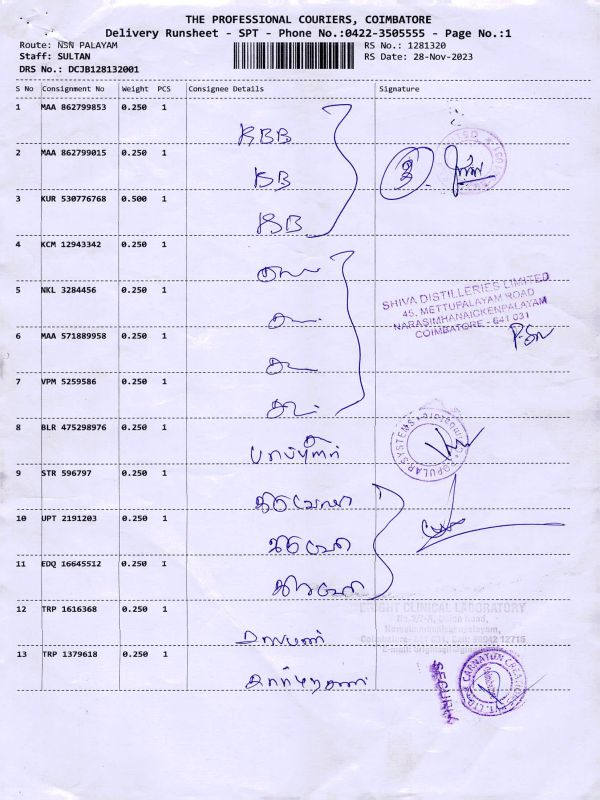 THE PROFESSIONAL COURIERS, COIMBATORE
Delivery Runsheet - SPT - Phone No.:0422-3505555 - Page No.:1
Route: NSN PALAYAM RS No.: 1281320
Staff: SULTAN RS Date: 28-Nov-2023
DRS No.: DCJB128132001
S No Consignment No Weight PCS Consignee Details Signature
1 MAA 862799853 0.250 1
KBB
2 MAA 862799015 0.250 1
KB
3 KUR 530776768 0.500 1
KB
3
4 KCM 12943342 0.250 1
5 NKL 3284456 0.250 1
SHIVA DISTILLERIES LIMITED
45, METTUPALAYAM ROAD
NARASIMHANAICKENPALAYAM
COIMBATORE - 641 031
6 MAA 571889958 0.250 1
7 VPM 5259586 0.250 1
8 BLR 475298976 0.250 1
POPULAR SYSTEMS
9 STR 596797 0.250 1
10 UPT 2191203 0.250 1
11 EDQ 16645512 0.250 1
12 TRP 1616368 0.250 1
BRIGHT CLINICAL LABORATORY
13 TRP 1379618 0.250 1
SECURITY